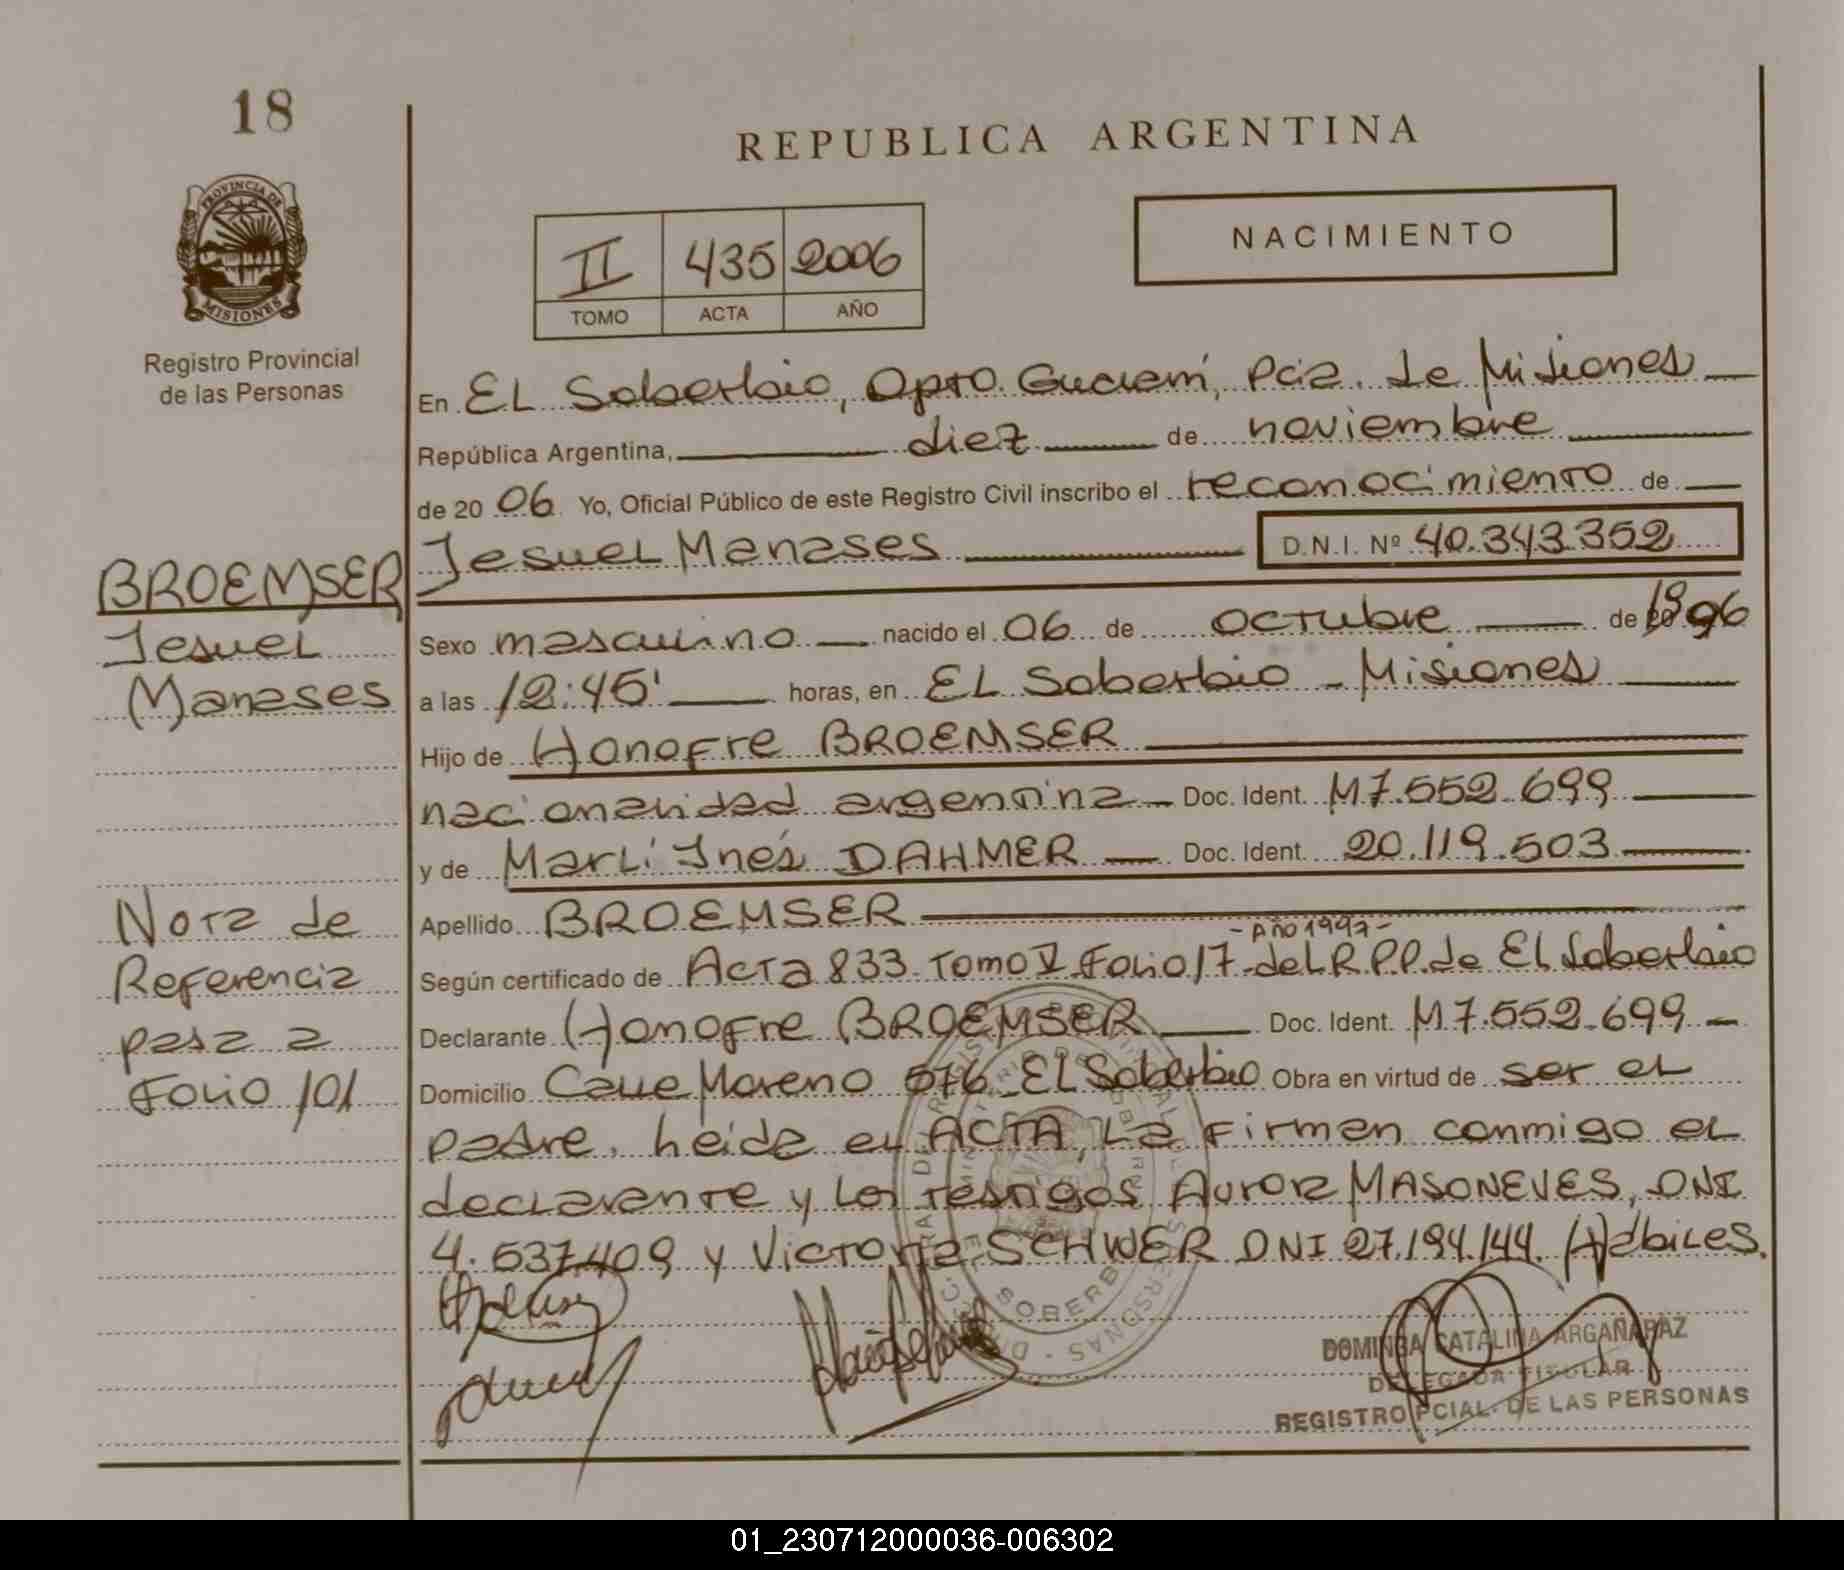 18
REPUBLICA ARGENTINA
PROVINCIA DE
MISIONES
Registro Provincial
de las Personas
NACIMIENTO
II 435 2006
TOMO ACTA AÑO
En EL Soberbio, Dpto. Guaraní, Pcia. de Misiones
República Argentina, diez de noviembre
de 20 06 Yo, Oficial Público de este Registro Civil inscribo el reconocimiento de
Jesuel Manases D.N.I. Nº 40.343.352
BROEMSER
Jesuel
Manases
Sexo masculino nacido el 06 de octubre de 1996
a las 12:45' horas, en EL Soberbio - Misiones
Hijo de Honofre BROEMSER
nacionalidad argentina Doc. Ident. M7.552.699
y de Marli Inés DAHMER Doc. Ident. 20.119.503
Apellido BROEMSER
- Año 1997-
Según certificado de Acta 833 Tomo V Folio 17 del R.P.P. de El Soberbio
Declarante Honofre BROEMSER Doc. Ident. M7.552.699
Domicilio Calle Moreno 576 EL Soberbio Obra en virtud de ser el
padre, heida el ACTA, la firman conmigo el
declarante y los testigos Aurora MASONEVES, DNI
4.537.409 y Victoria SCHWER DNI 27.194.144. Hábiles.
Nota de
Referencia
pasa a
Folio 101
SOBERB
DOMINGA CATALINA ARGAÑARAZ
DELEGADA TITULAR
REGISTRO PCIAL. DE LAS PERSONAS
01_230712000036-006302